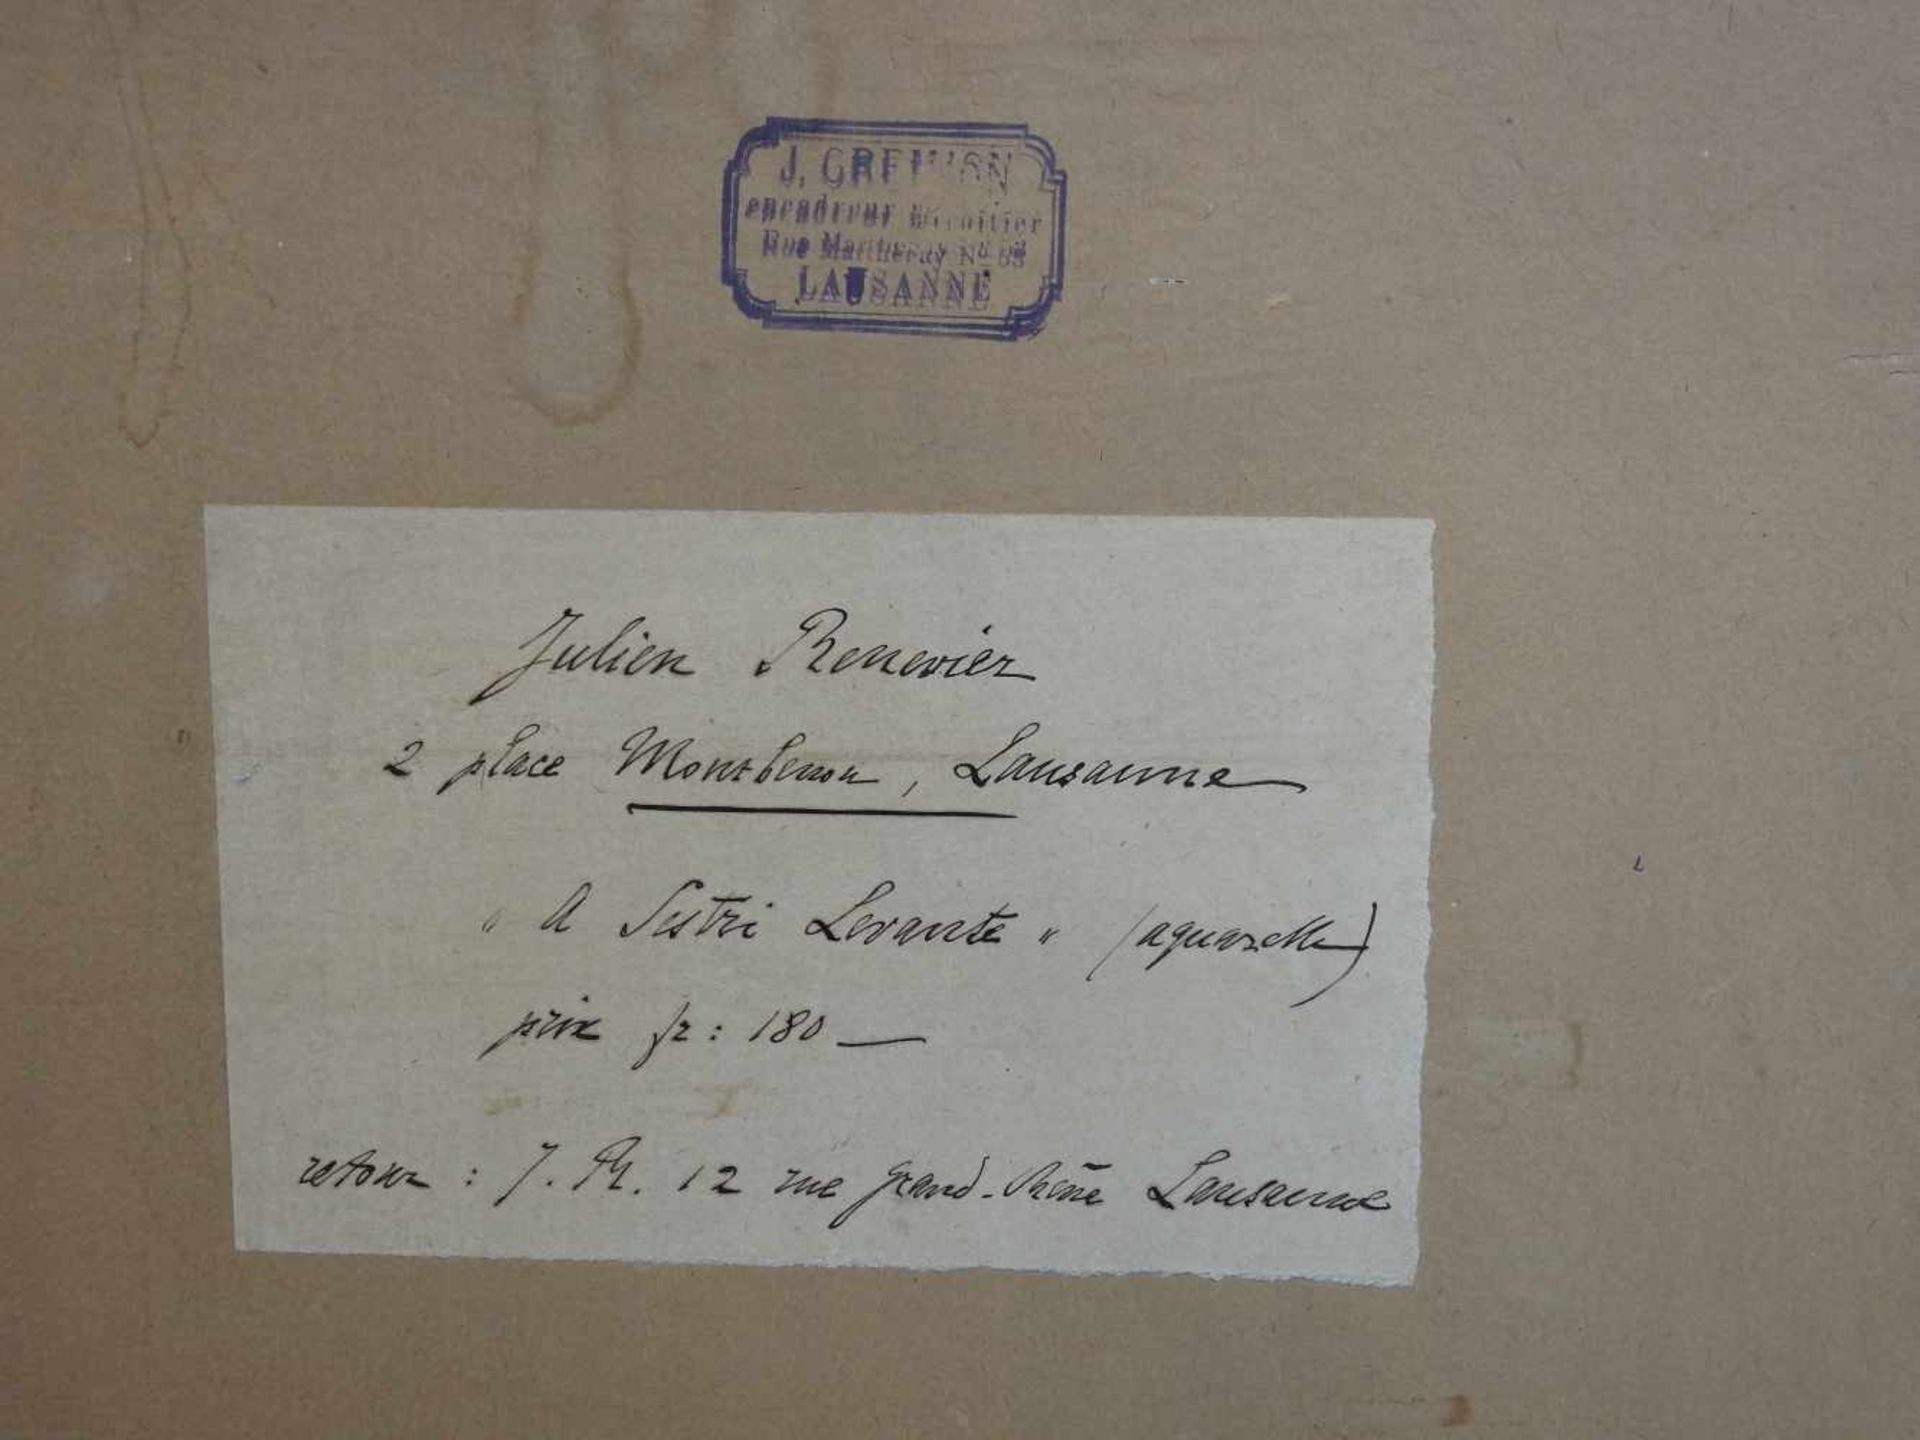 J.
encadreur Miroitier
Rue Martheray No
LAUSANNE
Julien Renevier
2 place Montbenon, Lausanne
" A Sestri Levante " (aquarelle)
prix fr : 180 —
retour : J. R. 12 rue Grand-Chêne Lausanne